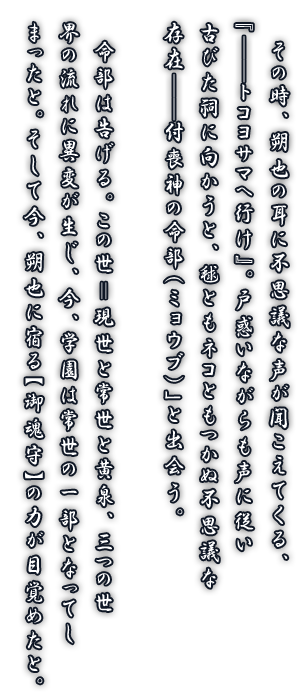 その時、朔也の耳に不思議な声が聞こえてくる、
『――トコヨサマへ行け』。戸惑いながらも声に従い
古びた祠に向かうと、毬ともネコともつかぬ不思議な
存在――付喪神の命部(ミョウブ)」と出会う。
命部は告げる。この世＝現世と常世と黄泉、三つの世
界の流れに異変が生じ、今、学園は常世の一部となってし
まったと。そして今、朔也に宿る【御魂守】の力が目覚めたと。